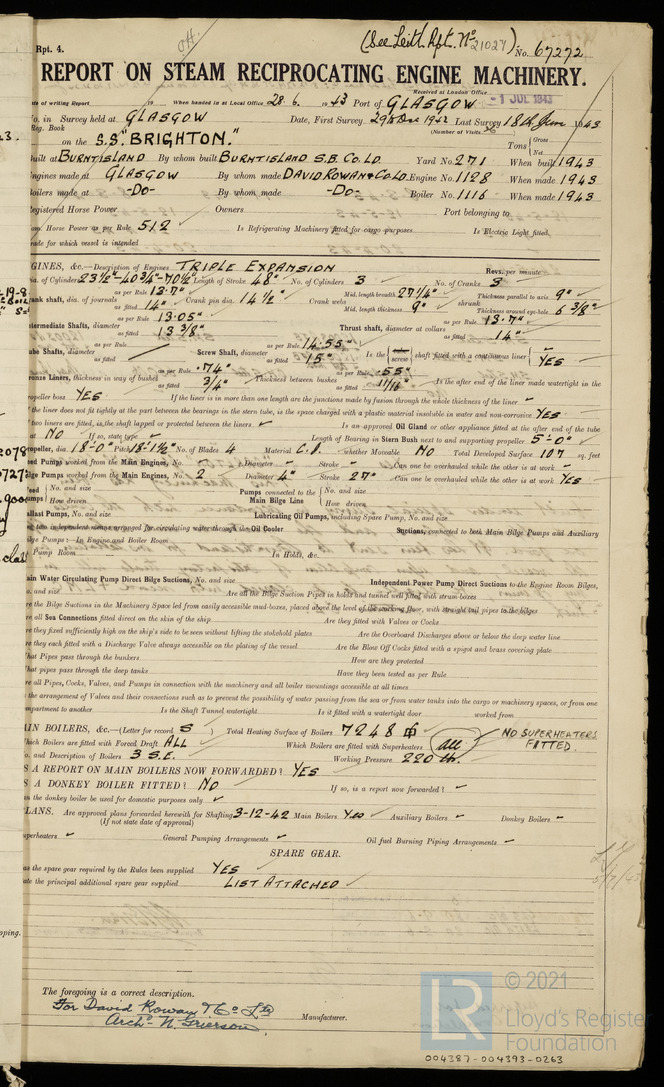 Rpt. 4.
(See Leith Rpt. No 21027) No. 67272
REPORT ON STEAM RECIPROCATING ENGINE MACHINERY.
Received at London Office
-1 JUL 1943
ate of writing Report 19 When handed in at Local Office 28. 6. 1943 Port of GLASGOW
No. in Survey held at GLASGOW Date, First Survey 29th Dec 1942 Last Survey 18th June 1943
Reg. Book (Number of Visits
on the S.S. "BRIGHTON." Tons { Gross Net
uilt at BURNTISLAND By whom built BURNTISLAND S.B. Co. LD Yard No. 271 When built 1943
ngines made at GLASGOW By whom made DAVID ROWAN & Co. LD. Engine No. 1128 When made 1943
oilers made at -Do- By whom made -Do- Boiler No. 1116 When made 1943
egistered Horse Power Owners Port belonging to
om. Horse Power as per Rule 512 Is Refrigerating Machinery fitted for cargo purposes Is Electric Light fitted
rade for which vessel is intended
GINES, &c.—Description of Engines TRIPLE EXPANSION Revs. per minute
ia. of Cylinders 23½"-40¾"-70½" Length of Stroke 48" No. of Cylinders 3 No. of Cranks 3
rank shaft, dia. of journals as per Rule 13.7" as fitted 14" Crank pin dia. 14½" Crank webs Mid. length breadth 27¼" Mid. length thickness 9" shrunk Thickness parallel to axis 9" Thickness around eye-hole 6 3/8"
termediate Shafts, diameter as per Rule 13.05" as fitted 13 3/8" Thrust shaft, diameter at collars as per Rule 13.7" as fitted 14"
ube Shafts, diameter as per Rule as fitted Screw Shaft, diameter as per Rule 14.55" as fitted 15" Is the { tube screw } shaft fitted with a continuous liner { YES
ronze Liners, thickness in way of bushes as per Rule .74" as fitted ¾" Thickness between bushes as per Rule .55" as fitted 11/16" Is the after end of the liner made watertight in the
ropeller boss YES If the liner is in more than one length are the junctions made by fusion through the whole thickness of the liner
the liner does not fit tightly at the part between the bearings in the stern tube, is the space charged with a plastic material insoluble in water and non-corrosive YES
two liners are fitted, is the shaft lapped or protected between the liners Is an approved Oil Gland or other appliance fitted at the after end of the tube
NO If so, state type Length of Bearing in Stern Bush next to and supporting propeller 5'-0"
ropeller, dia. 18'-0" Pitch 18'-1½" No. of Blades 4 Material C.I. whether Moveable NO Total Developed Surface 107 sq. feet
eed Pumps worked from the Main Engines, No. - Diameter - Stroke - Can one be overhauled while the other is at work -
ilge Pumps worked from the Main Engines, No. 2 Diameter 4" Stroke 27" Can one be overhauled while the other is at work YES
eed umps { No. and size How driven Pumps connected to the Main Bilge Line { No. and size How driven
allast Pumps, No. and size Lubricating Oil Pumps, including Spare Pump, No. and size
two independent means arranged for circulating water through the Oil Cooler Suctions, connected to both Main Bilge Pumps and Auxiliary
ilge Pumps:—In Engine and Boiler Room
Pump Room In Holds, &c.
ain Water Circulating Pump Direct Bilge Suctions, No. and size Independent Power Pump Direct Suctions to the Engine Room Bilges,
o. and size Are all the Bilge Suction Pipes in holds and tunnel well fitted with strum-boxes
re the Bilge Suctions in the Machinery Space led from easily accessible mud-boxes, placed above the level of the working floor, with straight tail pipes to the bilges
re all Sea Connections fitted direct on the skin of the ship Are they fitted with Valves or Cocks
re they fixed sufficiently high on the ship's side to be seen without lifting the stokehold plates Are the Overboard Discharges above or below the deep water line
re they each fitted with a Discharge Valve always accessible on the plating of the vessel Are the Blow Off Cocks fitted with a spigot and brass covering plate
hat Pipes pass through the bunkers How are they protected
hat pipes pass through the deep tanks Have they been tested as per Rule
re all Pipes, Cocks, Valves, and Pumps in connection with the machinery and all boiler mountings accessible at all times
the arrangement of Valves and their connections such as to prevent the possibility of water passing from the sea or from water tanks into the cargo or machinery spaces, or from one
mpartment to another Is the Shaft Tunnel watertight Is it fitted with a watertight door worked from
AIN BOILERS, &c.—(Letter for record S ) Total Heating Surface of Boilers 7248
NO SUPERHEATERS FITTED.
hich Boilers are fitted with Forced Draft ALL Which Boilers are fitted with Superheaters All
o. and Description of Boilers 3 S.E. Working Pressure 220 lb.
S A REPORT ON MAIN BOILERS NOW FORWARDED? YES
S A DONKEY BOILER FITTED? NO If so, is a report now forwarded? -
n the donkey boiler be used for domestic purposes only -
LANS. Are approved plans forwarded herewith for Shafting 3-12-42 Main Boilers Yes Auxiliary Boilers - Donkey Boilers -
(If not state date of approval)
uperheaters - General Pumping Arrangements - Oil fuel Burning Piping Arrangements -
SPARE GEAR.
as the spare gear required by the Rules been supplied YES
ate the principal additional spare gear supplied LIST ATTACHED
The foregoing is a correct description.
For David Rowan & Co Ltd
Archd N. Grierson Manufacturer.
LR © 2021
Lloyd's Register
Foundation
004387-004393-0263